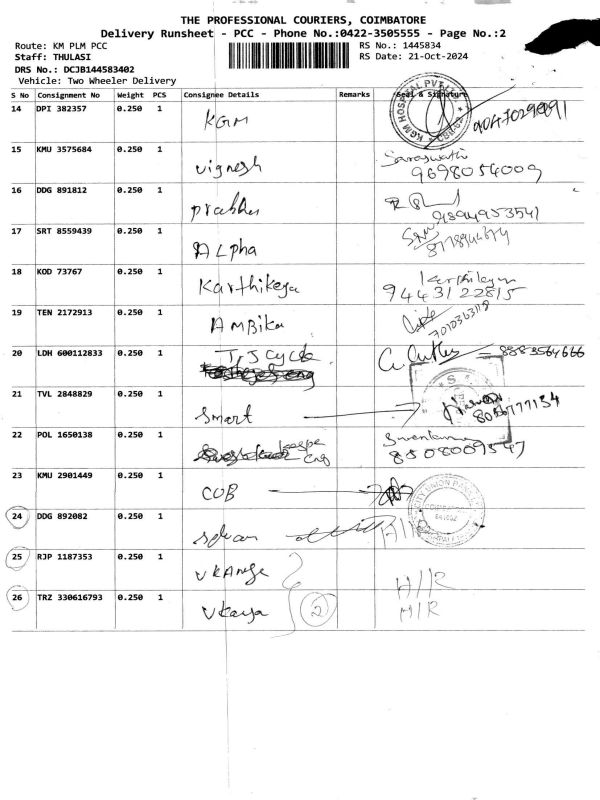 THE PROFESSIONAL COURIERS, COIMBATORE
Delivery Runsheet - PCC - Phone No.:0422-3505555 - Page No.:2
Route: KM PLM PCC RS No.: 1445834
Staff: THULASI RS Date: 21-Oct-2024
DRS No.: DCJB144583402
Vehicle: Two Wheeler Delivery
S No Consignment No Weight PCS Consignee Details Remarks Seal & Signature
14 DPI 382357 0.250 1 KGM
15 KMU 3575684 0.250 1 vignesh Saraswathi
9698054009
16 DDG 891812 0.250 1 prabhu
9894953541
17 SRT 8559439 0.250 1 ALpha
18 KOD 73767 0.250 1 Karthikeya
9443122815
19 TEN 2172913 0.250 1 AMBika
7010363118
20 LDH 600112833 0.250 1 TJS Cycle 8883564666
21 TVL 2848829 0.250 1 Smart
8056777134
22 POL 1650138 0.250 1
8508009547
23 KMU 2901449 0.250 1 CUB
24 DDG 892082 0.250 1 selvan H/R
25 RJP 1187353 0.250 1 H/R
26 TRZ 330616793 0.250 1 2 H/R